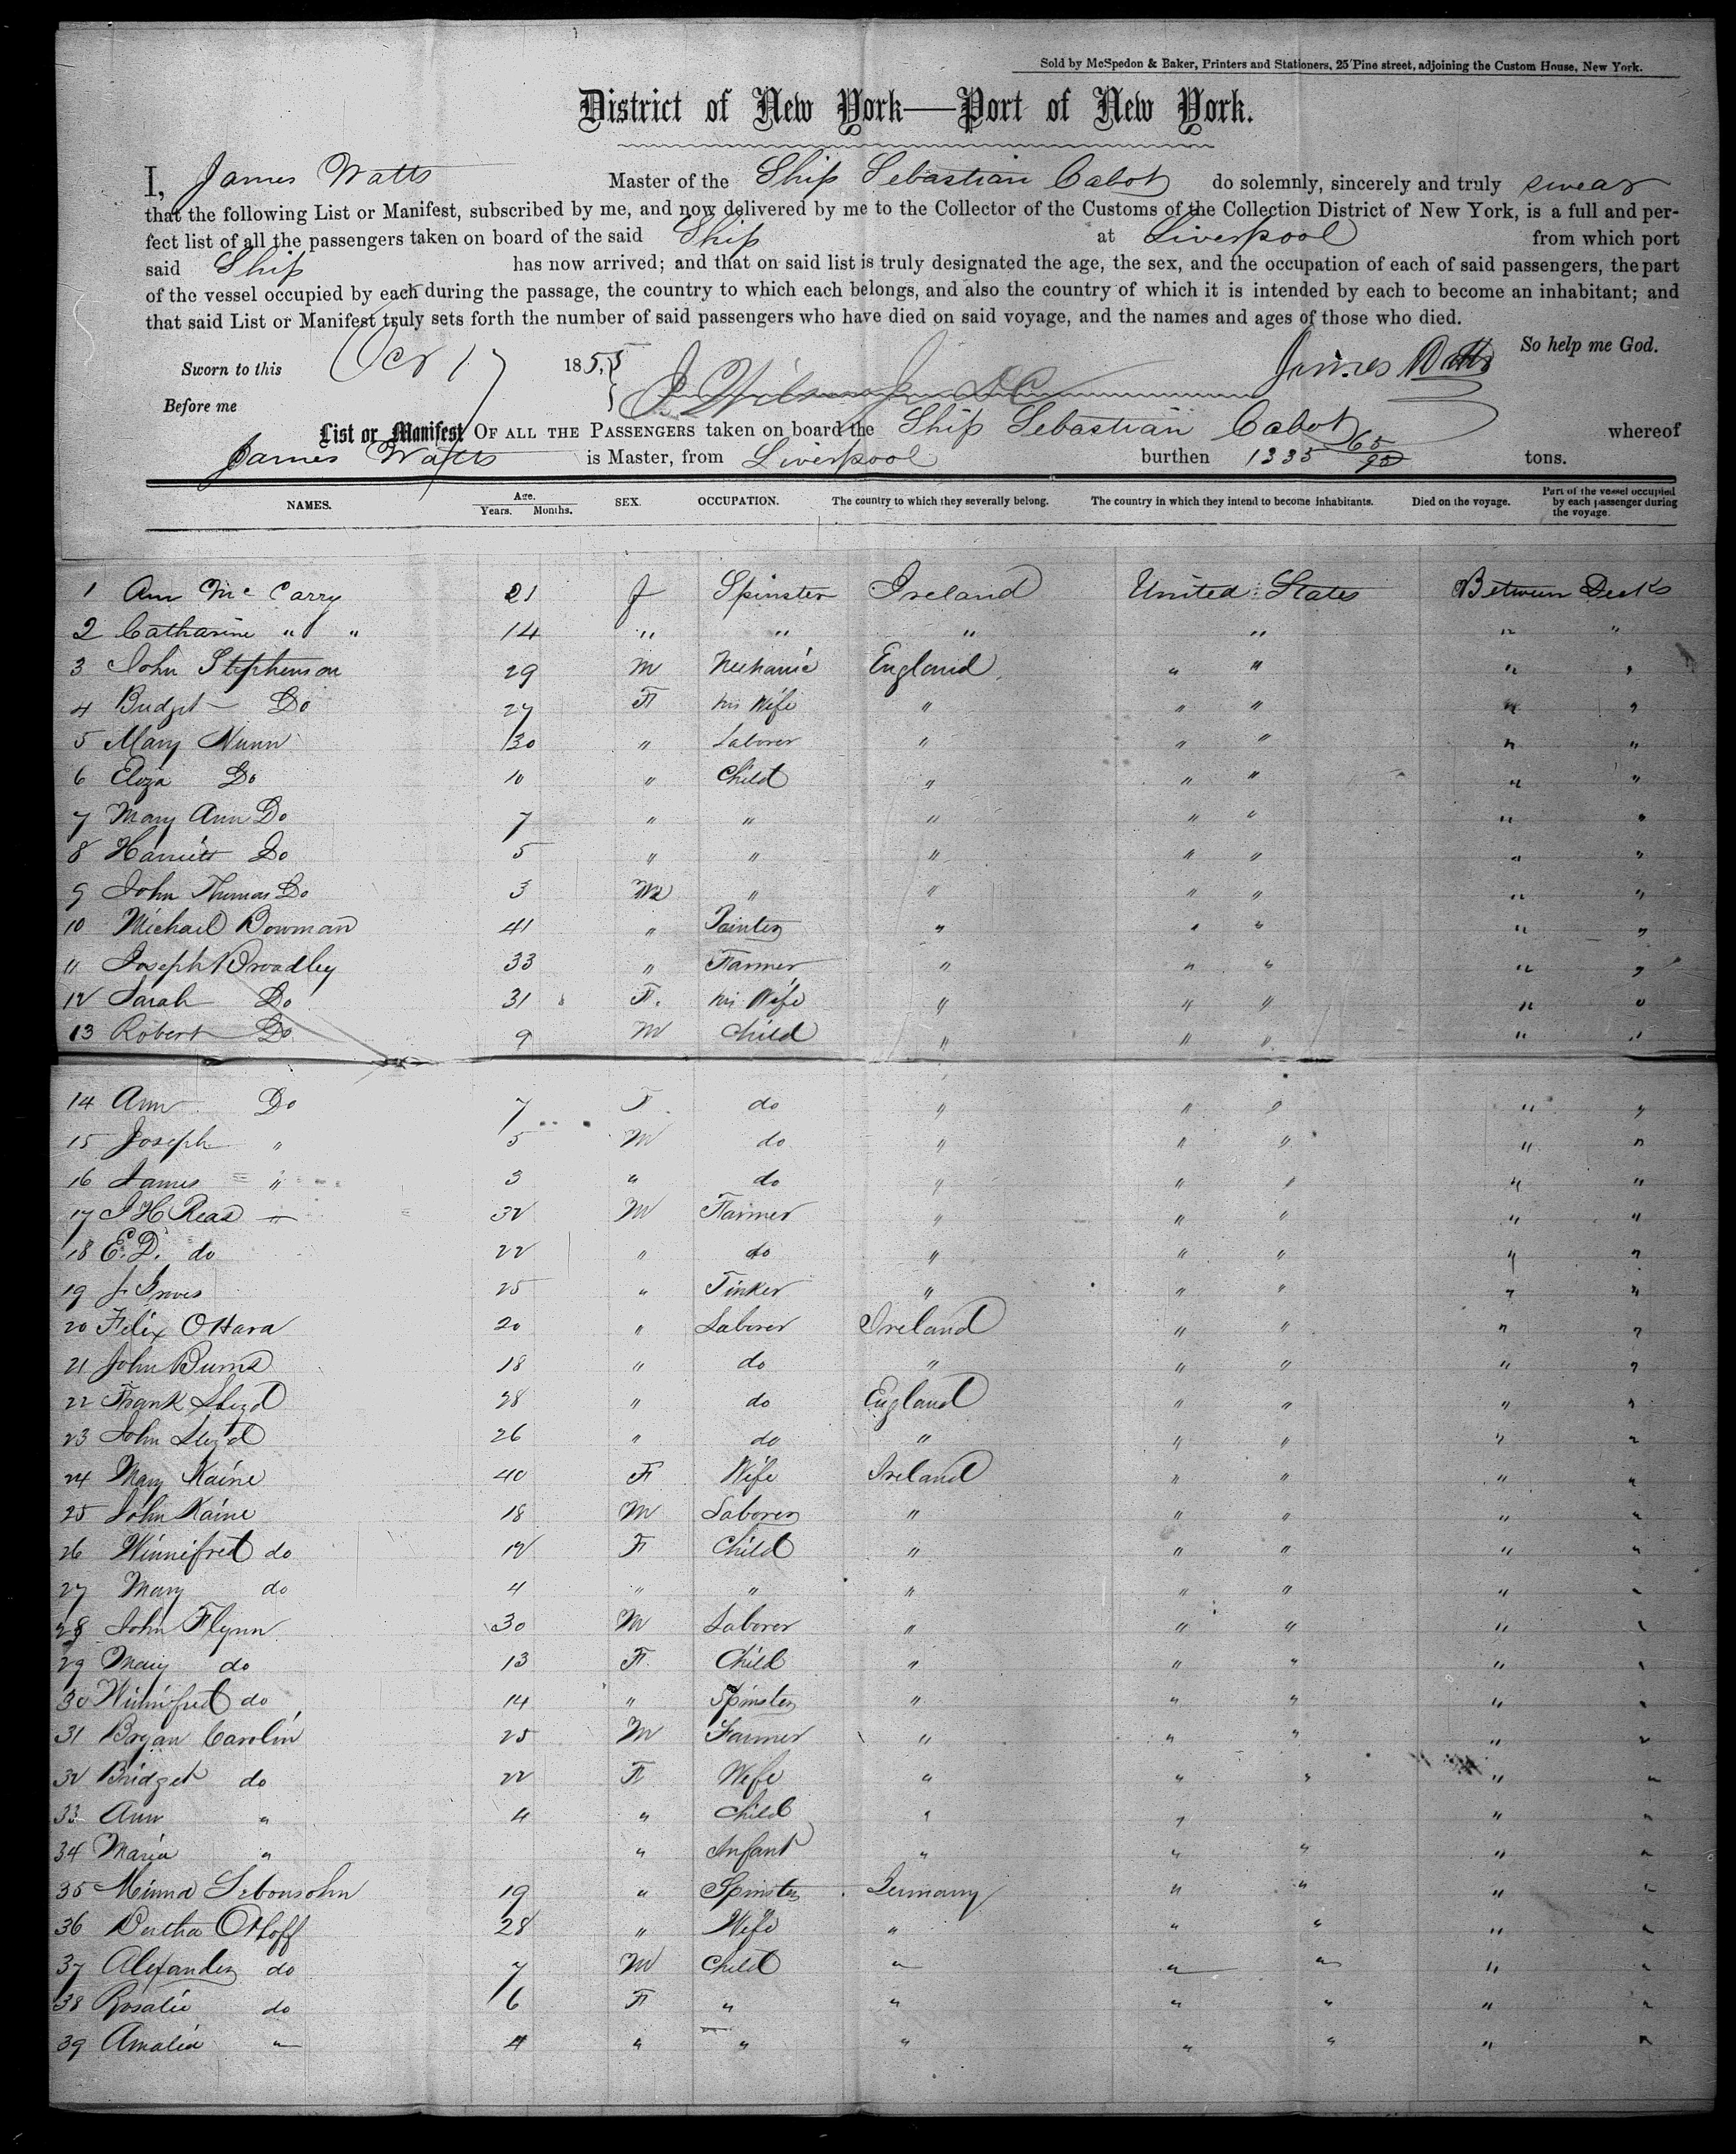 Sold by McSpedon & Baker, Printers and Stationers, 25 Pine street, adjoining the Custom House, New York.
District of New York—Port of New York.
I, James Watts Master of the Ship Sebastian Cabot do solemnly, sincerely and truly swear
that the following List or Manifest, subscribed by me, and now delivered by me to the Collector of the Customs of the Collection District of New York, is a full and per-
fect list of all the passengers taken on board of the said Ship at Liverpool from which port
said Ship has now arrived; and that on said list is truly designated the age, the sex, and the occupation of each of said passengers, the part
of the vessel occupied by each during the passage, the country to which each belongs, and also the country of which it is intended by each to become an inhabitant; and
that said List or Manifest truly sets forth the number of said passengers who have died on said voyage, and the names and ages of those who died.
So help me God.
Sworn to this Oct 17 1855 James Watts
Before me
List or Manifest OF ALL THE PASSENGERS taken on board the Ship Sebastian Cabot whereof
James Watts is Master, from Liverpool burthen 1335 65/95 tons.
NAMES. Age. Years. Months. SEX. OCCUPATION. The country to which they severally belong. The country in which they intend to become inhabitants. Died on the voyage. Part of the vessel occupied by each passenger during the voyage.
1 Ann Mc Carry 21 f Spinster Ireland United States Between Decks
2 Catharine " " 14 " " " " " "
3 John Stephenson 29 M Mechanic England " " " "
4 Budget Do 27 F his Wife " " " " "
5 Mary Nunn 30 " Laborer " " " " "
6 Eliza Do 10 " Child " " " " "
7 Mary Ann Do 7 " " " " " " "
8 Harriett Do 5 " " " " " " "
9 John Thomas Do 3 M " " " " " "
10 Michael Bowman 41 " Painter " " " " "
11 Joseph Broadley 33 " Farmer " " " " "
12 Sarah Do 31 F. his Wife " " " " "
13 Robert Do 9 M Child " " " " "
14 Ann Do 7 F do " " " " "
15 Joseph " 5 M do " " " " "
16 James " 3 " do " " " " "
17 J H Read 32 M Farmer " " " " "
18 E. D. do 22 " do " " " " "
19 J Groves 25 " Tinker " " " " "
20 Felix OHara 20 " Laborer Ireland " " " "
21 John Burns 18 " do " " " " "
22 Frank Lloyd 28 " do England " " " "
23 John Lloyd 26 " do " " " " "
24 Mary Kaine 40 F Wife Ireland " " " "
25 John Kaine 18 M Laborer " " " " "
26 Winnifred do 12 F Child " " " " "
27 Mary do 4 " " " " " " "
28 John Flynn 30 M Laborer " " " " "
29 Mary do 13 F. Child " " " " "
30 Winnifred do 14 " Spinster " " " " "
31 Bryan Carolin 25 M Farmer " " " " "
32 Bridget do 22 F Wife " " " " "
33 Ann " 4 " Child " " " " "
34 Maria " " Infant " " " " "
35 Minna 19 " Spinster Germany " " " "
36 Bertha Ohloff 28 " Wife " " " " "
37 Alexander do 7 M Child " " " " "
38 Rosalie do 6 F " " " " " "
39 Amalia " 4 " " " " " " "